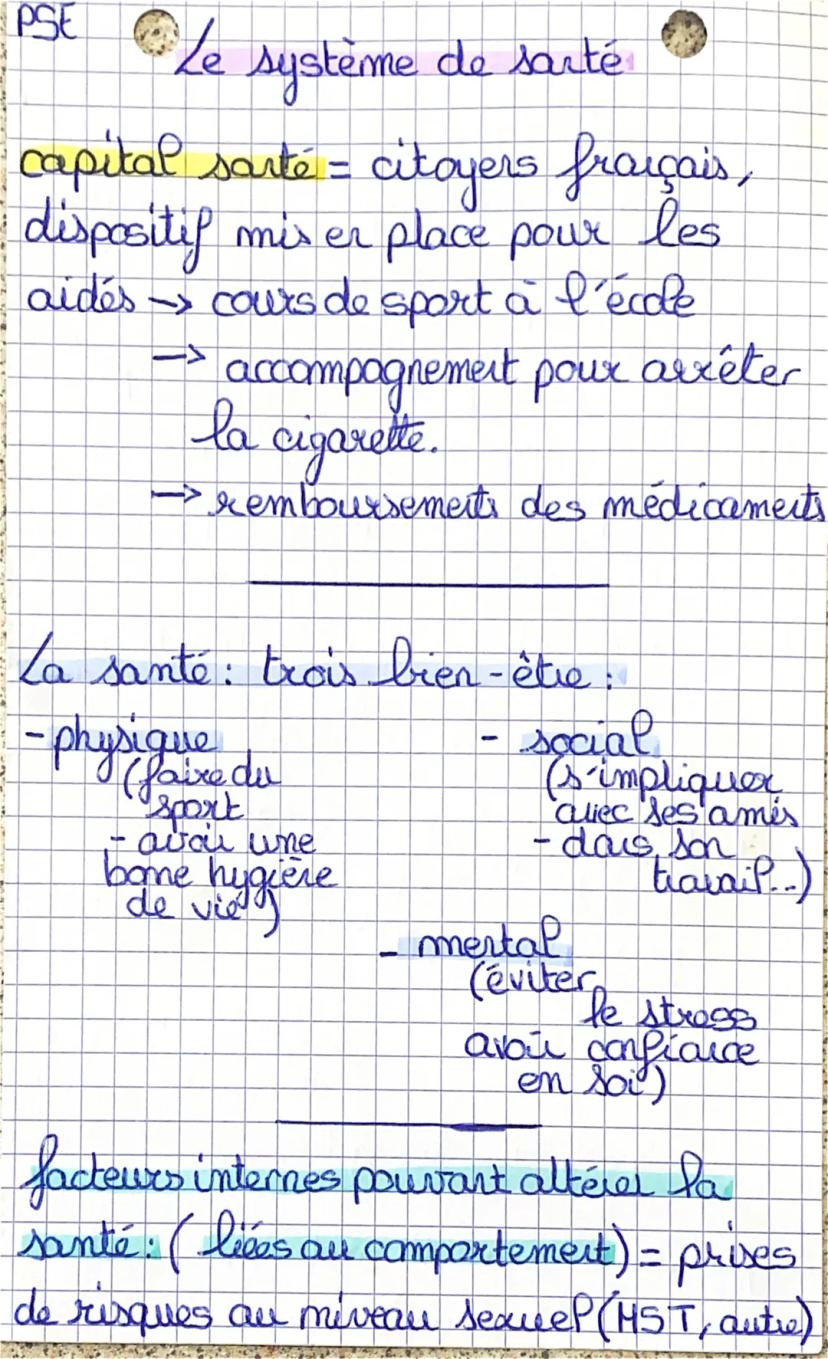 PSE
Le système de santé
capital santé = citoyens français,
dispositif mis en place pour les
aidés → cours de sport à l'école
→ accompagnement pour arrêter
la cigarette.
→ remboursements des médicaments
La santé : trois bien-être :
- physique
(faire du
sport
- avoir une
bonne hygiène
de vie)
- social
(s'impliquer
avec ses amis
- dans son
travail...)
- mental
(éviter
le stress
avoir confiance
en soi)
facteurs internes pouvant altérer la
santé : (liées au comportement) = prises
de risques au niveau sexuel (MST, autre)